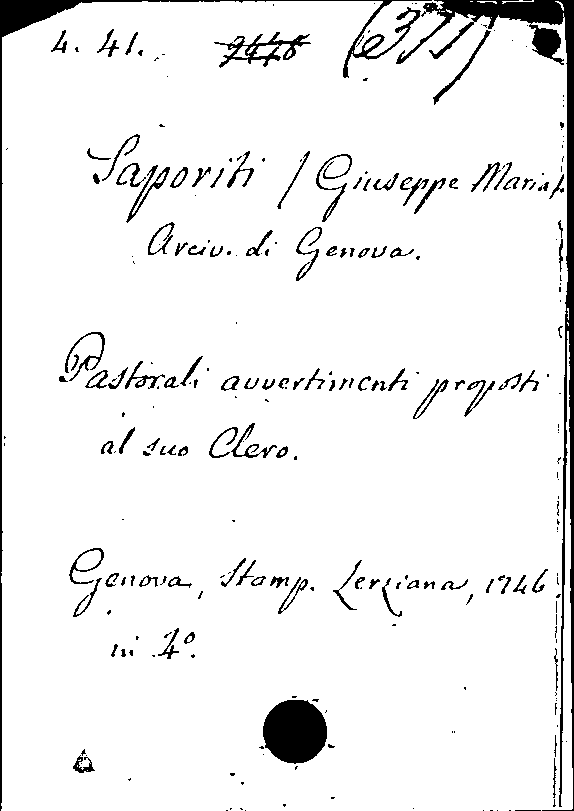 4. 41. 9478 (e371)
Saporiti / Giuseppe Maria /.
Arciv. di Genova.
Pastorali avvertimenti proposti
al suo Clero.
Genova, Stamp. Lerziana, 1746.
in 4º.